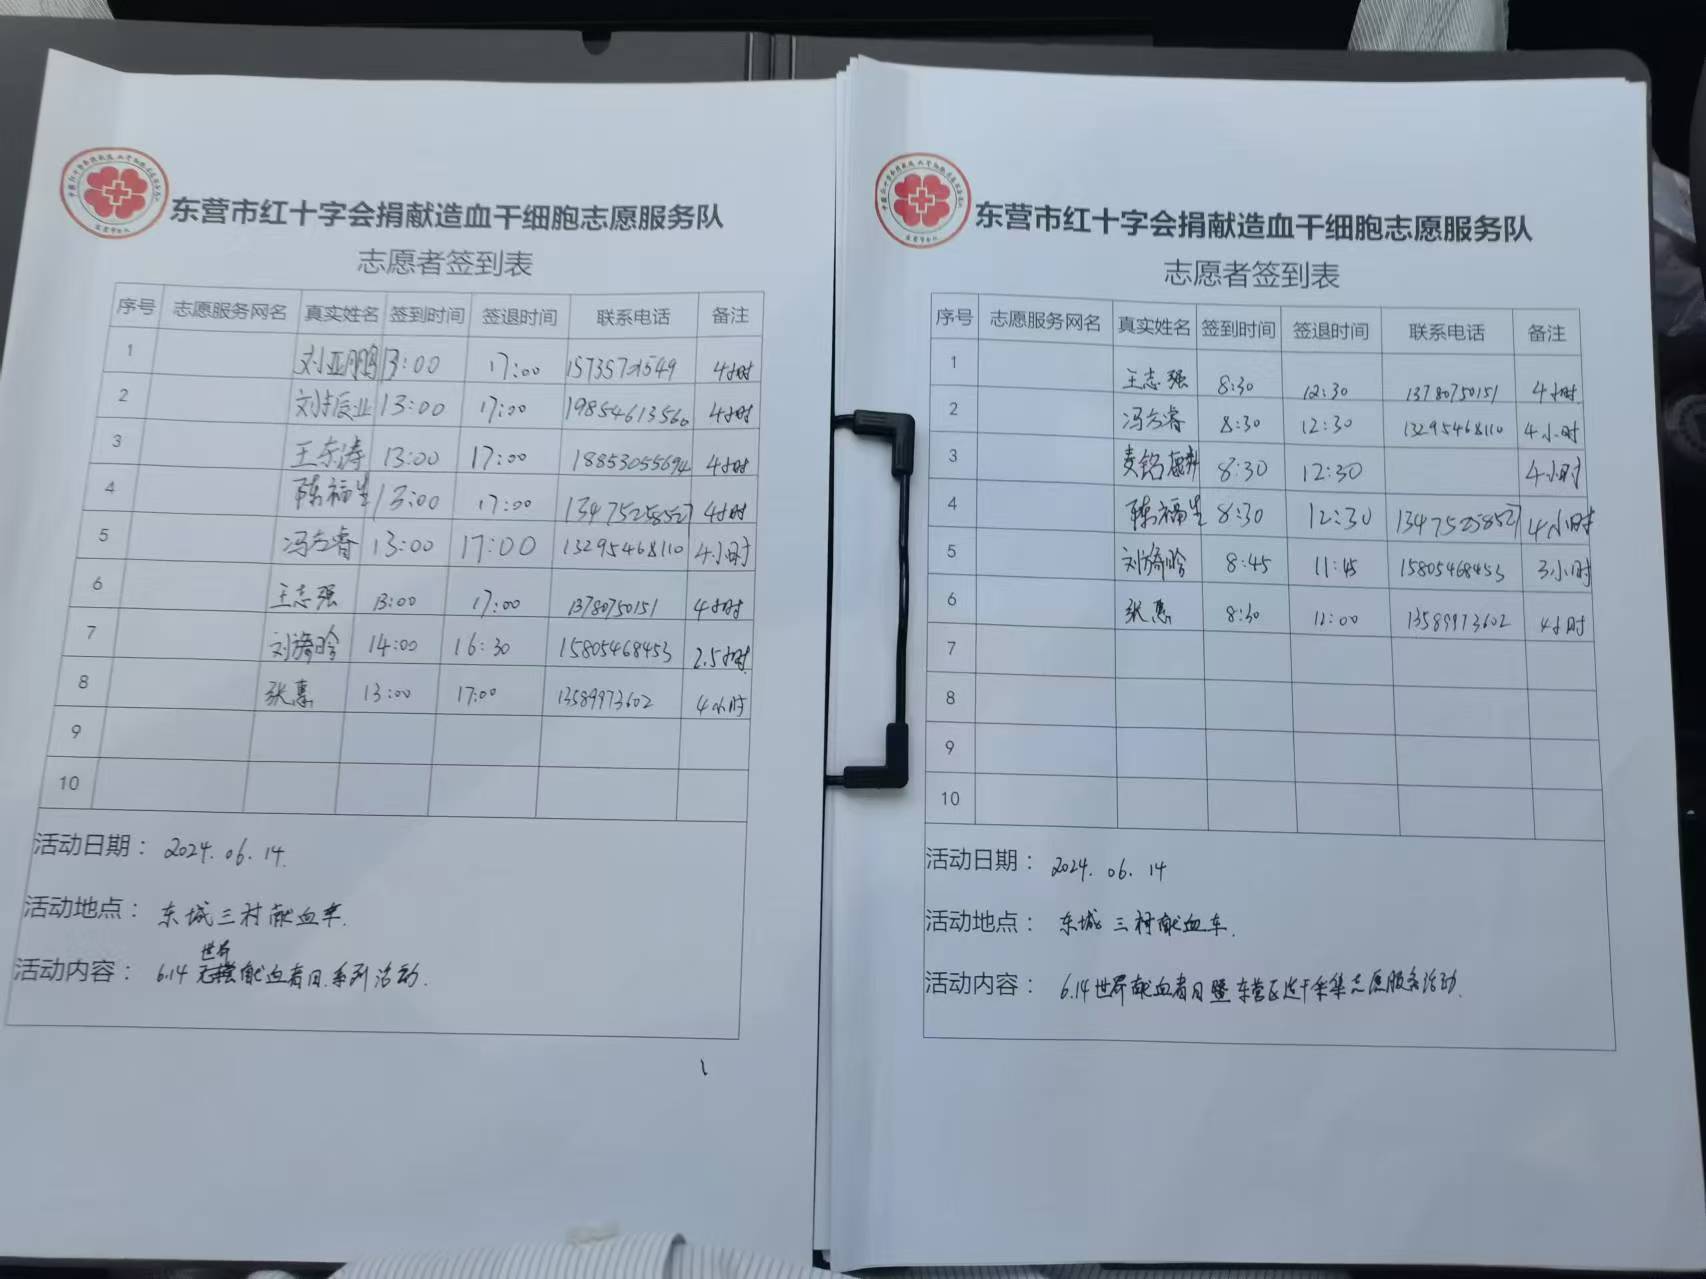 东营市红十字会捐献造血干细胞志愿服务队
志愿者签到表
序号 志愿服务网名 真实姓名 签到时间 签退时间 联系电话 备注
1 刘亚鹏 13:00 17:00 4小时
2 刘振业 13:00 17:00 19854613560 4小时
3 王东涛 13:00 17:00 18853055694 4小时
4 陈福生 13:00 17:00 13475258527 4小时
5 冯方睿 13:00 17:00 13295468110 4小时
6 王志强 13:00 17:00 13780750151 4小时
7 刘 14:00 16:30 15805468453 2.5小时
8 张惠 13:00 17:00 13589973602 4小时
9
10
活动日期： 2024.06.14.
活动地点： 东城三村献血车.
世界
活动内容： 6.14 献血者日.系列活动.
东营市红十字会捐献造血干细胞志愿服务队
志愿者签到表
序号 志愿服务网名 真实姓名 签到时间 签退时间 联系电话 备注
1 王志强 8:30 12:30 13780750151 4小时
2 冯方睿 8:30 12:30 13295468110 4小时
3 8:30 12:30 4小时
4 陈福生 8:30 12:30 13475258527 4小时
5 刘 8:45 11:45 15805468453 3小时
6 张惠 8:30 13589973602 4小时
7
8
9
10
活动日期： 2024.06.14
活动地点： 东城三村献血车.
活动内容： 6.14世界献血者日暨东营区造干采集志愿服务活动.